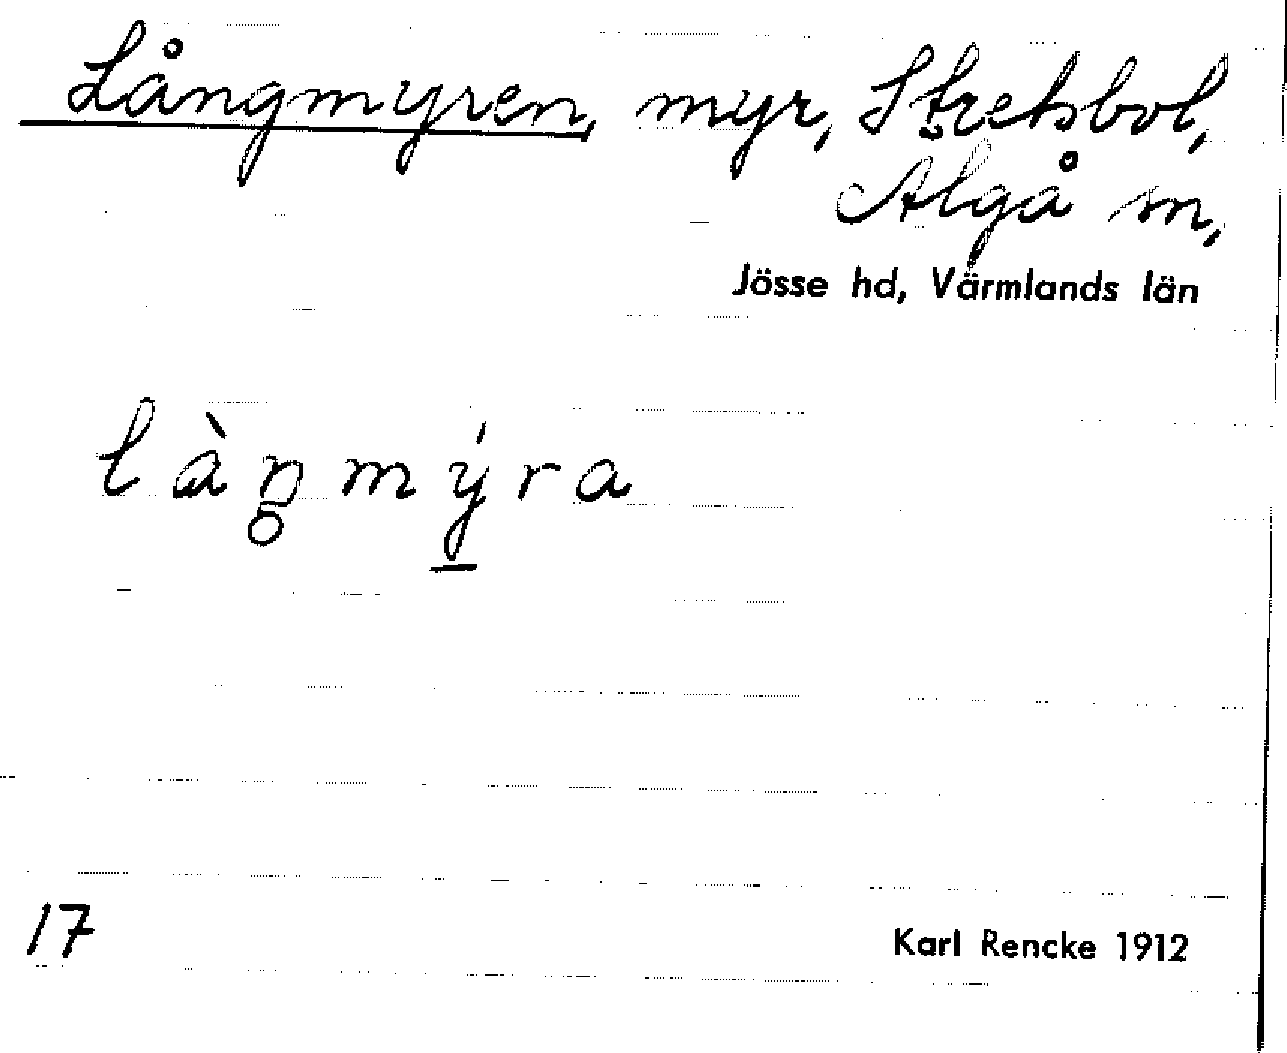 Långmyren, myr, Stretsbol,
Älgå sn,
Jösse hd, Värmlands län
làŋmýra
17
Karl Rencke 1912